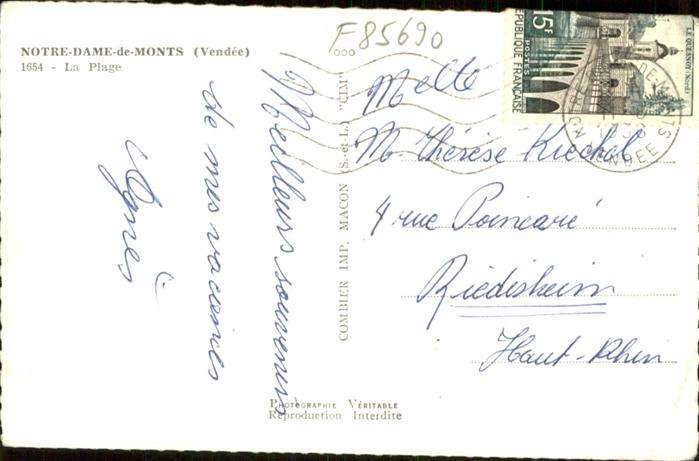 NOTRE-DAME-de-MONTS (Vendée)
1654 - La Plage
F85690
Meilleurs souvenirs
de mes vacances
Agnès
COMBIER IMP. MACON (S.-et-L.) "CIM"
15F
POSTES
REPUBLIQUE FRANÇAISE
LE QUIMPER
VENDEE
Melle
M. Thérèse Kiechel
4 rue Poincaré
Riedisheim
Haut-Rhin
PHOTOGRAPHIE VÉRITABLE
Reproduction Interdite